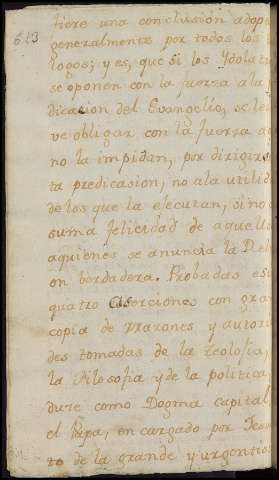 613
tiere una conclusión adop
generalmente por todos los
logos; y es, que si los Ydola
se oponen con la fuerza a la
dicacion del Evangelio, se le
ve obligar con la fuerza a
no la impidan, por dirigirs
ta predicasion, no ala utilid
de los que la executan, sino
suma felicidad de aquell
aquienes se anuncia la Rel
on berdadera. Probadas es
quatro aserciones con gra
copia de rrazones y autori
des tomadas de la teolosia
la filosofia y de la politica
duze como Dogma capital
el Papa, en cargado por Jesu
to de la grande y urgentis